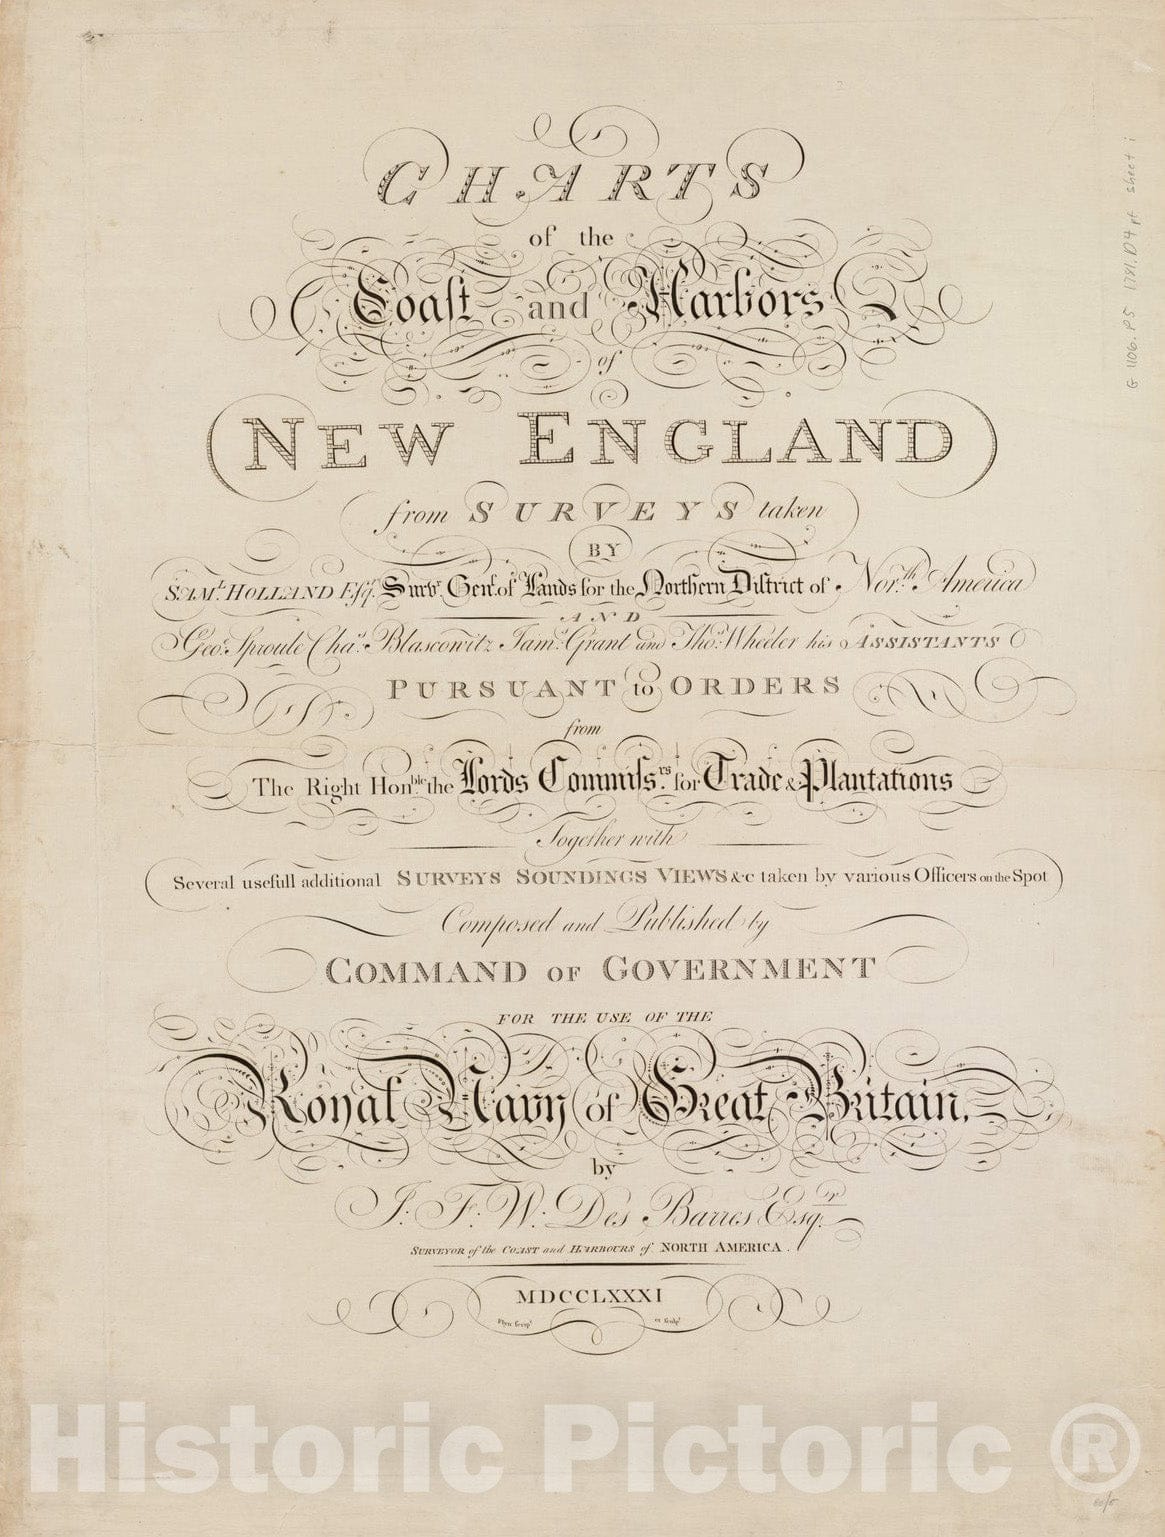 CHARTS
of the
Coaſt and Harbors
of
NEW ENGLAND
from SURVEYS taken
BY
SAML. HOLLAND Eſqr. Survr. Genl. of Lands for the Northern District of North. America
AND
Geo. Sproule Chas. Blascowitz Jams. Grant and Thos. Wheeler his ASSISTANTS
PURSUANT to ORDERS
from
The Right Honble. the Lords Commiſsrs. for Trade & Plantations
Together with
Several usefull additional SURVEYS SOUNDINGS VIEWS &c taken by various Officers on the Spot
Composed and Published by
COMMAND OF GOVERNMENT
FOR THE USE OF THE
Royal Navy of Great Britain.
by
J: F: W: Des Barres Esqr.
SURVEYOR of the COAST and HARBOURS of NORTH AMERICA.
MDCCLXXXI
et sculpt
G 1106.P5 1781.D4 pt sheet i
Historic Pictoric ®